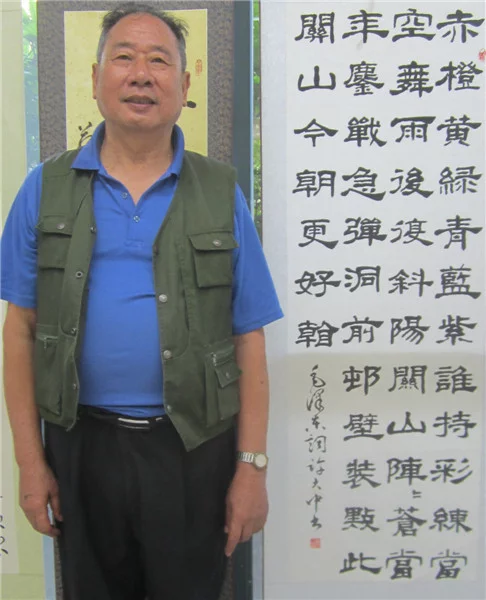 赤橙黄緑青藍紫誰持彩練當
空舞雨後復斜陽關山陣〻蒼當
年鏖戰急彈洞前邨壁裝點此
關山今朝更好看
毛澤東詞許大中書